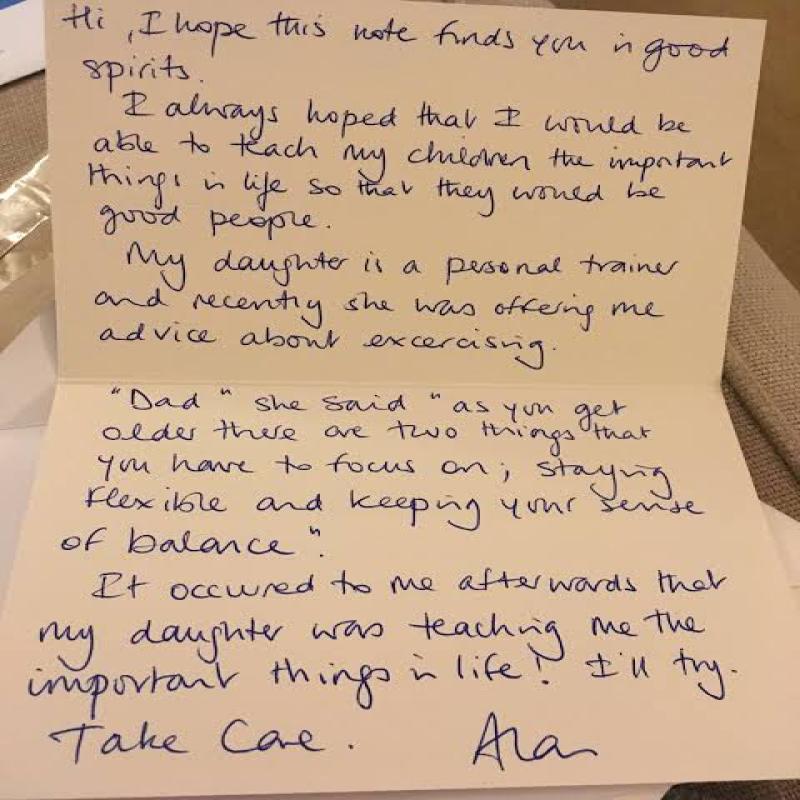 Hi, I hope this note finds you in good
spirits.
I always hoped that I would be
able to teach my children the important
things in life so that they would be
good people.
My daughter is a pesonal trainer
and recently she was offering me
advice about excercising.
"Dad" she said "as you get
older there are two things that
you have to focus on; staying
flexible and keeping your sense
of balance".
It occured to me afterwards that
my daughter was teaching me the
important things in life! I'll try.
Take Care. Alan